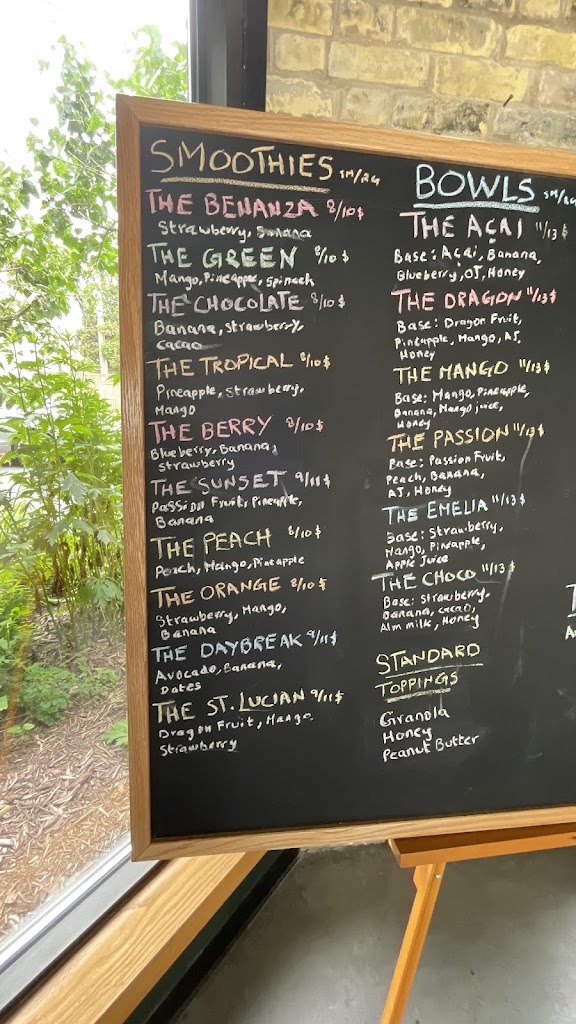 SMOOTHIES SM/LG
THE BENANZA 8/10$
Strawberry, Banana
THE GREEN 8/10$
Mango, Pineapple, Spinach
THE CHOCOLATE 8/10$
Banana, Strawberry,
Cacao
THE TROPICAL 8/10$
Pineapple, Strawberry,
Mango
THE BERRY 8/10$
Blueberry, Banana,
Strawberry
THE SUNSET 9/11$
Passion Fruit, Pineapple,
Banana
THE PEACH 8/10$
Peach, Mango, Pineapple
THE ORANGE 8/10$
Strawberry, Mango,
Banana
THE DAYBREAK 9/11$
Avocado, Banana,
Dates
THE ST. LUCIAN 9/11$
Dragon Fruit, Mango,
Strawberry
BOWLS SM/LG
THE AÇAI 11/13$
Base: Açai, Banana,
Blueberry, OJ, Honey
THE DRAGON 11/13$
Base: Dragon Fruit,
Pineapple, Mango, AJ,
Honey
THE MANGO 11/13$
Base: Mango, Pineapple,
Banana, Mango juice,
Honey
THE PASSION 11/13$
Base: Passion Fruit,
Peach, Banana,
AJ, Honey
THE EMELIA 11/13$
Base: Strawberry,
Mango, Pineapple,
Apple Juice
THE CHOCO 11/13$
Base: Strawberry,
Banana, cacao,
Alm milk, Honey
STANDARD
TOPPINGS
Granola
Honey
Peanut Butter